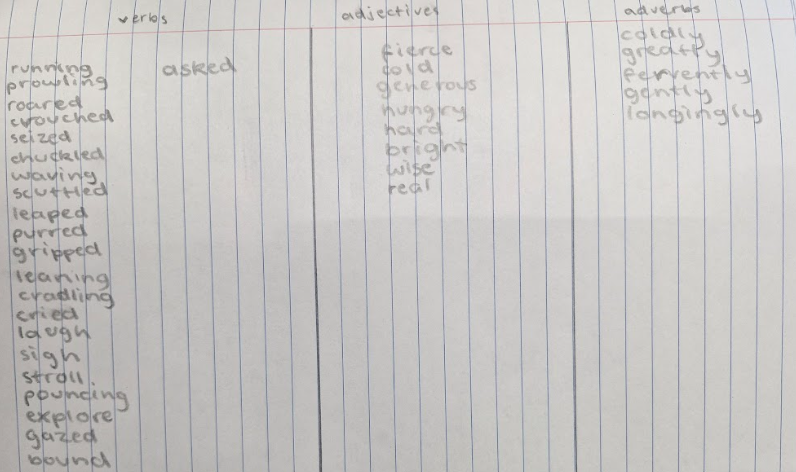 verbs adjectives adverbs
running
prowling
roared
crouched
seized
chuckled
waving
scuttled
leaped
purred
gripped
leaning
cradling
cried
laugh
sigh
stroll
pounding
explore
gazed
bound
asked
fierce
cold
generous
hungry
hard
bright
wise
real
coldly
greatly
fervently
gently
longingly